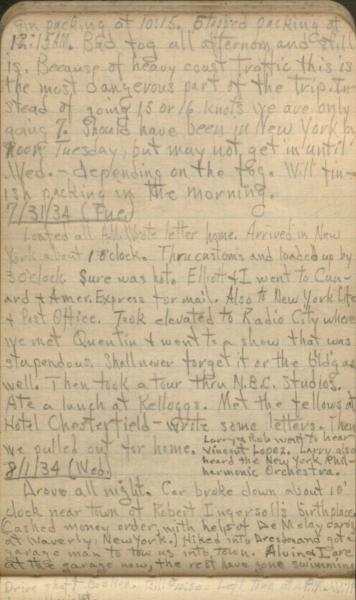 gin packing at 10:15. Stopped packing at
12:15 AM. Bad fog all afternoon and still
is. Because of heavy coast traffic this is
the most dangerous part of the trip. In-
stead of going 15 or 16 knots we are only
going 7. Should have been in New York by
noon Tuesday, but may not get in until
Wed. - depending on the fog. Will fin-
ish packing in the morning.
7/31/34 (Tue)
Loafed all A.M. Wrote letter home. Arrived in New
York about 1 o'clock. Thru customs and loaded up by
3 o'clock. Sure was hot. Elliott & I went to Cun-
ard & Amer. Express for mail. Also to New York Life
& Post Office. Took elevated to Radio City where
we met Quentin & went to a show that was
stupendous. Shall never forget it or the bldg as
well. Then took a tour thru N.B.C. Studios.
Ate a lunch at Kelloggs. Met the fellows at
Hotel Chesterfield - write some letters. Then
we pulled out for home. Larry & Rob went to hear
Vincent Lopez. Larry also
heard the New York Phil-
harmonic Orchestra.
8/1/34 (Wed)
Drove all night. Car broke down about 10
clock near town of Robert Ingersoll's birthplace.
Cashed money order, with help of De Molay card,
at Waverly, New York.) Hiked into Dresden and got a
garage man to tow us into town. Alvin & I are
at the garage now, the rest have gone swimming